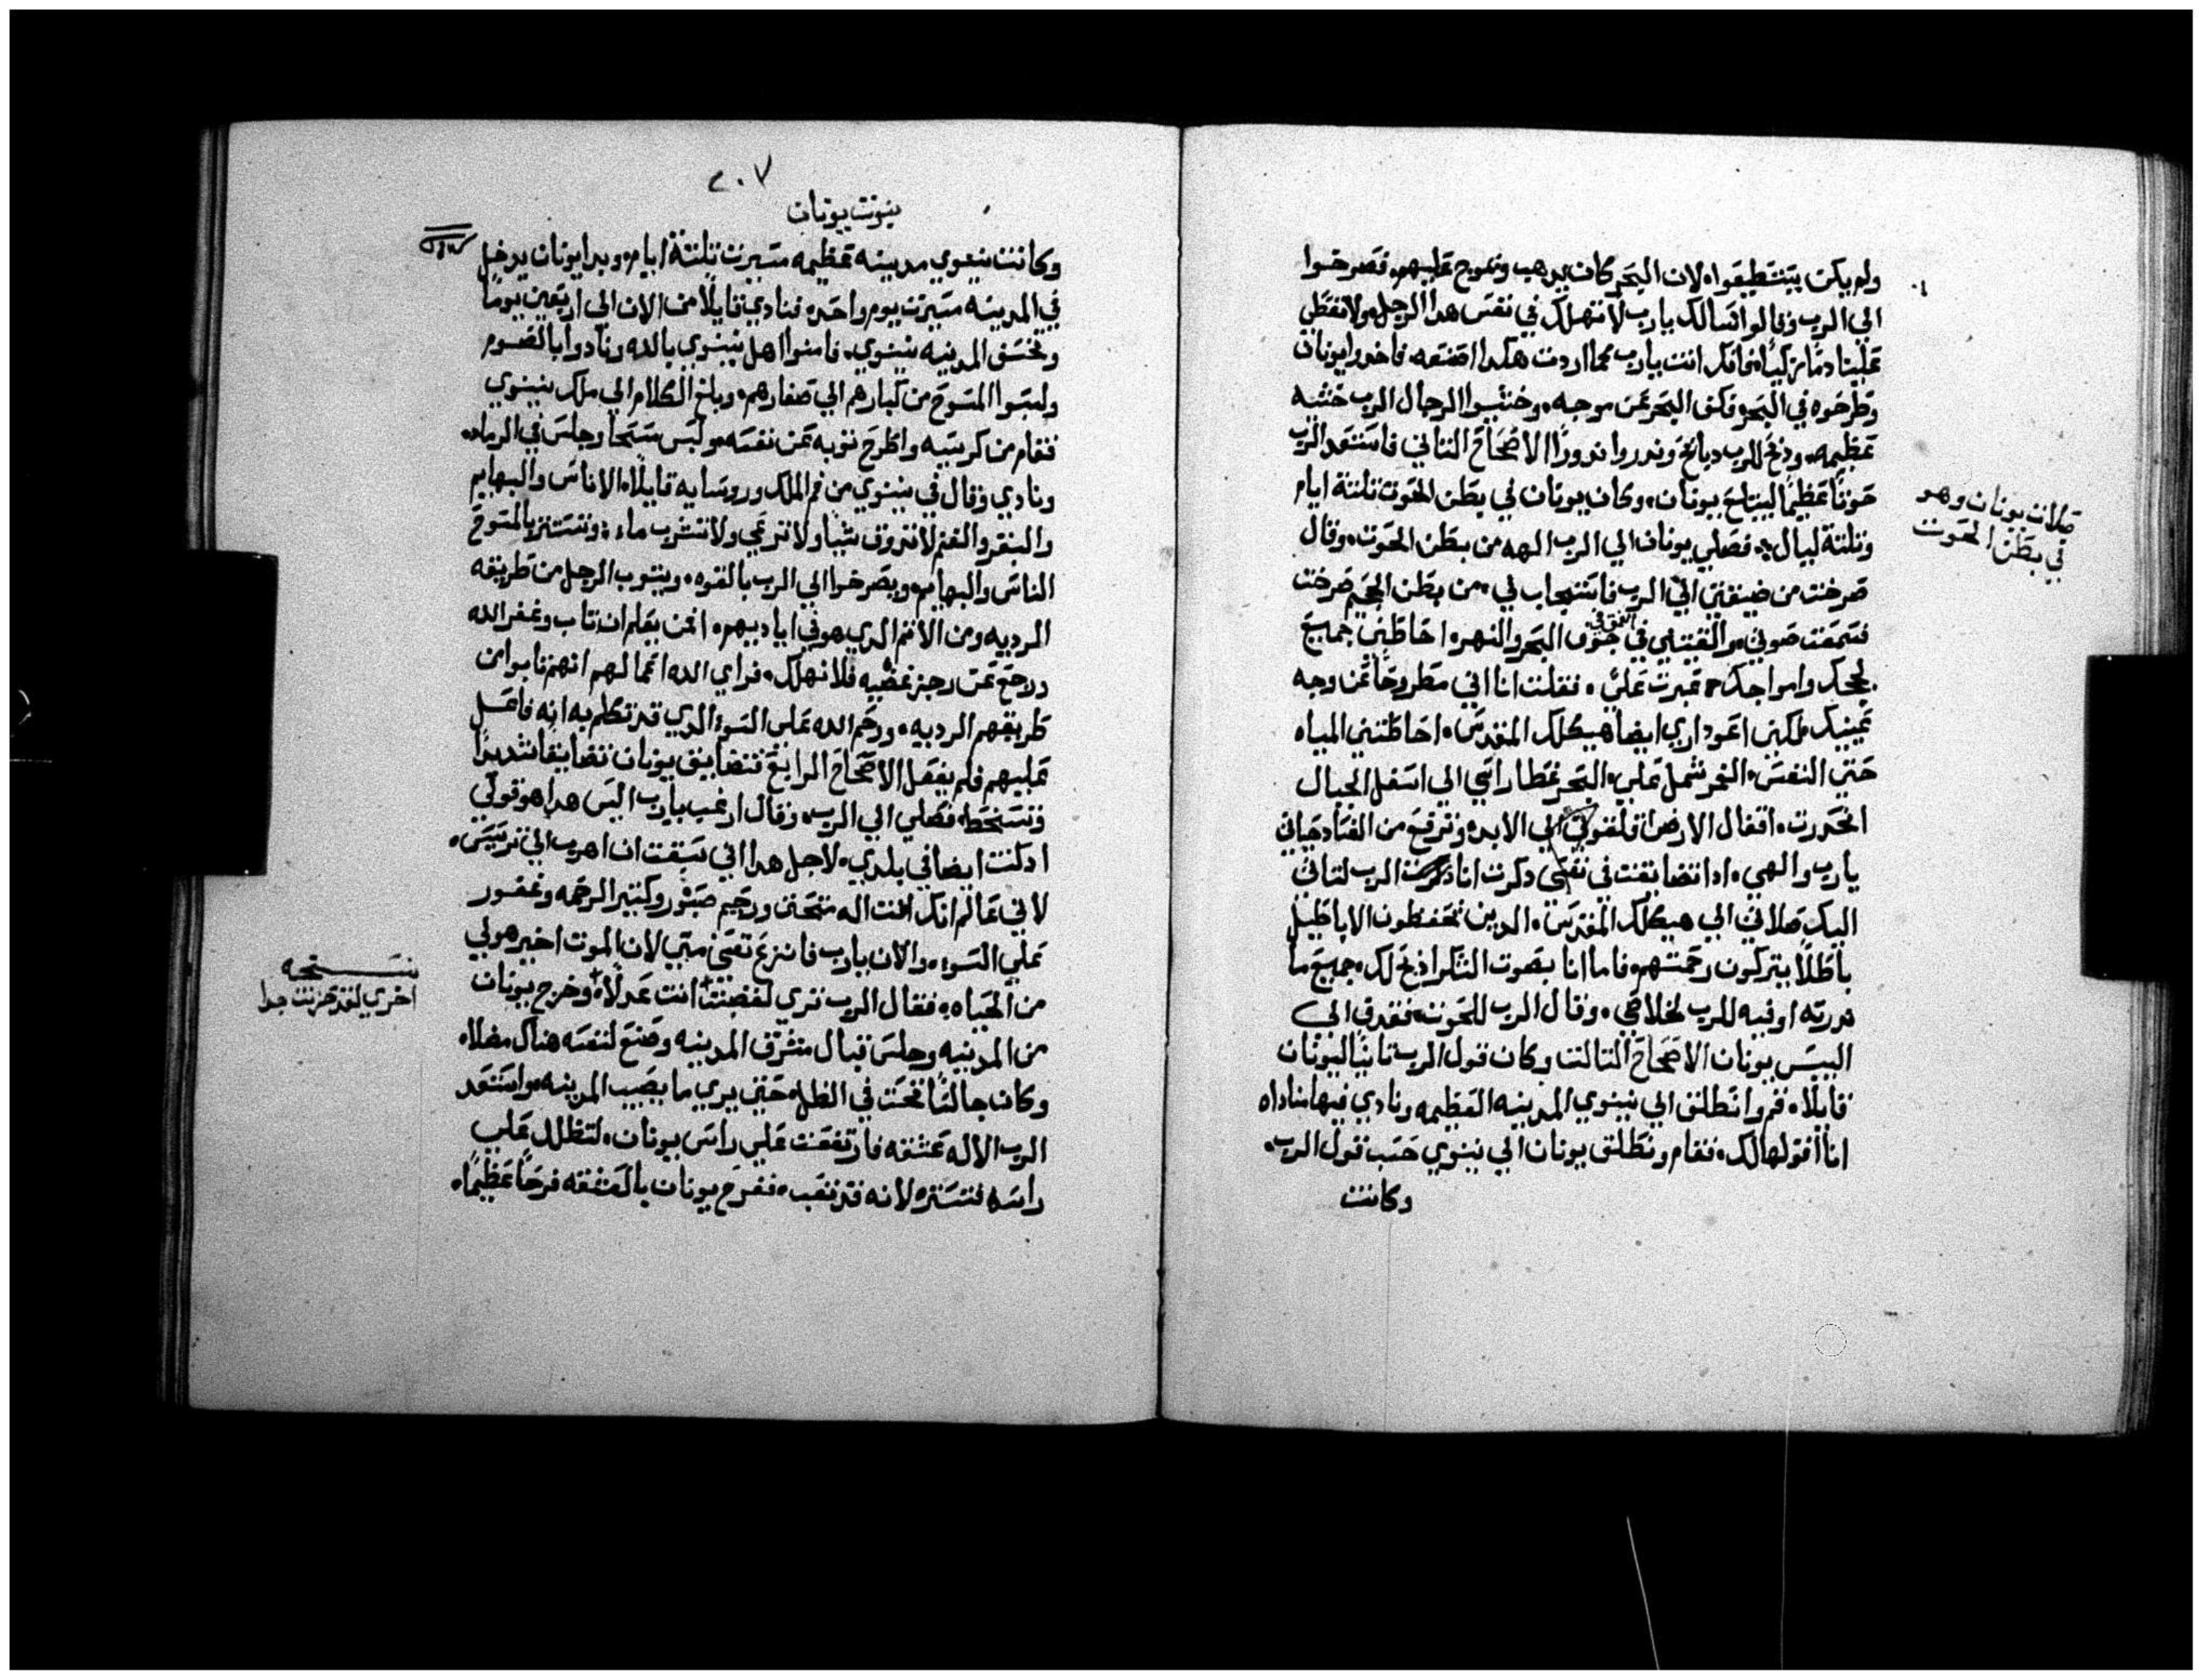 ولم يكن يستطيعوا لان البحر كان يدهب وتموج عليهم فصرخوا
الي الرب وقالوا نسالك يارب لا تهلك في نفس هدا الرجل ولا تعطي
علينا دمًا زكيًا فانك انت يارب كما اردت هكدا اصنعه فاخدوا يونان
وطرحوه في البحر فكف البحر عن موجه وخشيوا الرجال الرب خشيه
عظيمه ودبح للرب دبايح وندروا ندورًا الاصحاح التاني فاستعد الرب
حوتًا عظيمًا ليبتلع يونان وكان يونان في بطن الحوت تلتة ايام
وتلتة ليال فصلي يونان الي الرب الهه من بطن الحوت وقال
صلات يونان وهو
في بطن الحوت
صرخت من ضيقتي الي الرب فاستجاب لي من بطن الجحيم صرخت
فسمعت صوتي والقيتني في العمق في جوف البحر والنهر احاطني جميع
لججك وامواجك عبرت علي فقلت انا اني مطروحًا عن وجه
عينيك ولكني اعود اري ايضا هيكلك المقدس احاطتني المياه
حتي النفس الغمر شمل علي البحر غطا راسي الي اسفل الجبال
انحدرت اقفال الارض اغلقوني الي الابد وترفع من الفساد حياتي
يارب والهي ادا تضايقت في نفسي دكرت انا الرب لتاتي
اليك صلاتي الي هيكلك المقدس الدين يحفظون الاباطيل
باطلًا يتركون رحمتهم فاما انا بصوت الشكر ادبح لك جميع ما
ندرته اوفيه للرب لخلاصي وقال الرب للحوت فقدف الي
اليبس يونان الاصحاح التالت وكان قول الرب تانيًا ليونان
قايلًا قم وانطلق الي نينوي المدينه العظيمه ونادي فيها مناداه
انا اقولها لك فقام ونطلق يونان الي نينوي حسب قول الرب
وكانت
٢٠٧
نبوت يونان
وكانت نينوي مدينه عظيمه مسيرت تلتة ايام وبدا يونان يدخل
في المدينه مسيرت يوم واحد فنادي قايلًا من الان الي اربعين يومًا
وتخسف المدينه نينوي فامنوا اهل نينوي بالله ونادوا بالصوم
ولبسوا المسوح من كبارهم الي صغارهم وبلغ الكلام الي ملك نينوي
فقام من كرسيه واطرح توبه عن نفسه ولبس مسحًا وجلس في الرماد
ونادي وقال في نينوي من فم الملك وروسايه قايلًا الاناس والبهايم
والبقر والغنم لا تدوق شيا ولا ترعي ولا تشرب ماء وتستتر بالمسوح
الناس والبهايم ويصرخوا الي الرب بالقوه ويتوب الرجل من طريقه
الرديه ومن الاتم الدي هو في اياديهم من يعلم ان تاب وغفر الله
ورجع عن رجز غضبه فلا نهلك فراي الله اعمالهم انهم تابوا من
طريقهم الرديه ورحم الله علي السوء الدي قد تكلم به انه فاعل
عليهم فلم يفعل الاصحاح الرابع فتضايق يونان تضايقًا شديدًا
وتسخط فصلي الي الرب وقال ارغب يارب اليس هدا هو قولي
اد كنت ايضا في بلدي لاجل هدا اني سبقت ان اهرب الي ترسيس
لاني عالم انك انت اله متحنن ورحيم صبور وكتير الرحمه وغفور
علي السوء والان يارب فانزع نفسي مني لان الموت اخير هو لي
من الحياه فقال الرب تري لغضبت انت عدلًا وخرج يونان
نسخه
اخري لقد حزنت جدا
من المدينه وجلس قبال مشرق المدينه وصنع لنفسه هناك مضلاه
وكان جالسًا تحت في الظل حتي يري ما يصيب المدينه واستعد
الرب الاله عشقه فارتفعت علي راس يونان لتظلل علي
راسه لتستره لانه قد تعب ففرح يونان بالعشقه فرحًا عظيمًا